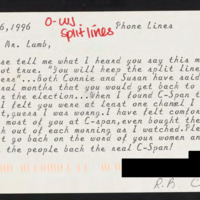 6,1996 O-W/ Phone Lines
split lines
Mr. Lamb,
se tell me what I heard you say this m
ot true. "You will keep the split line
ess"...both Connie and Susan have said
sal months that you would get back to
the election...When I found C-Span t
I felt you were at leat one channel I
t,guess I was wrong.I have felt comfor
most of you at C-span,even bought the
h out of each morning as I watched.Ple
t go back on the word of your women and
the people back the real C-Span!
R.R. C